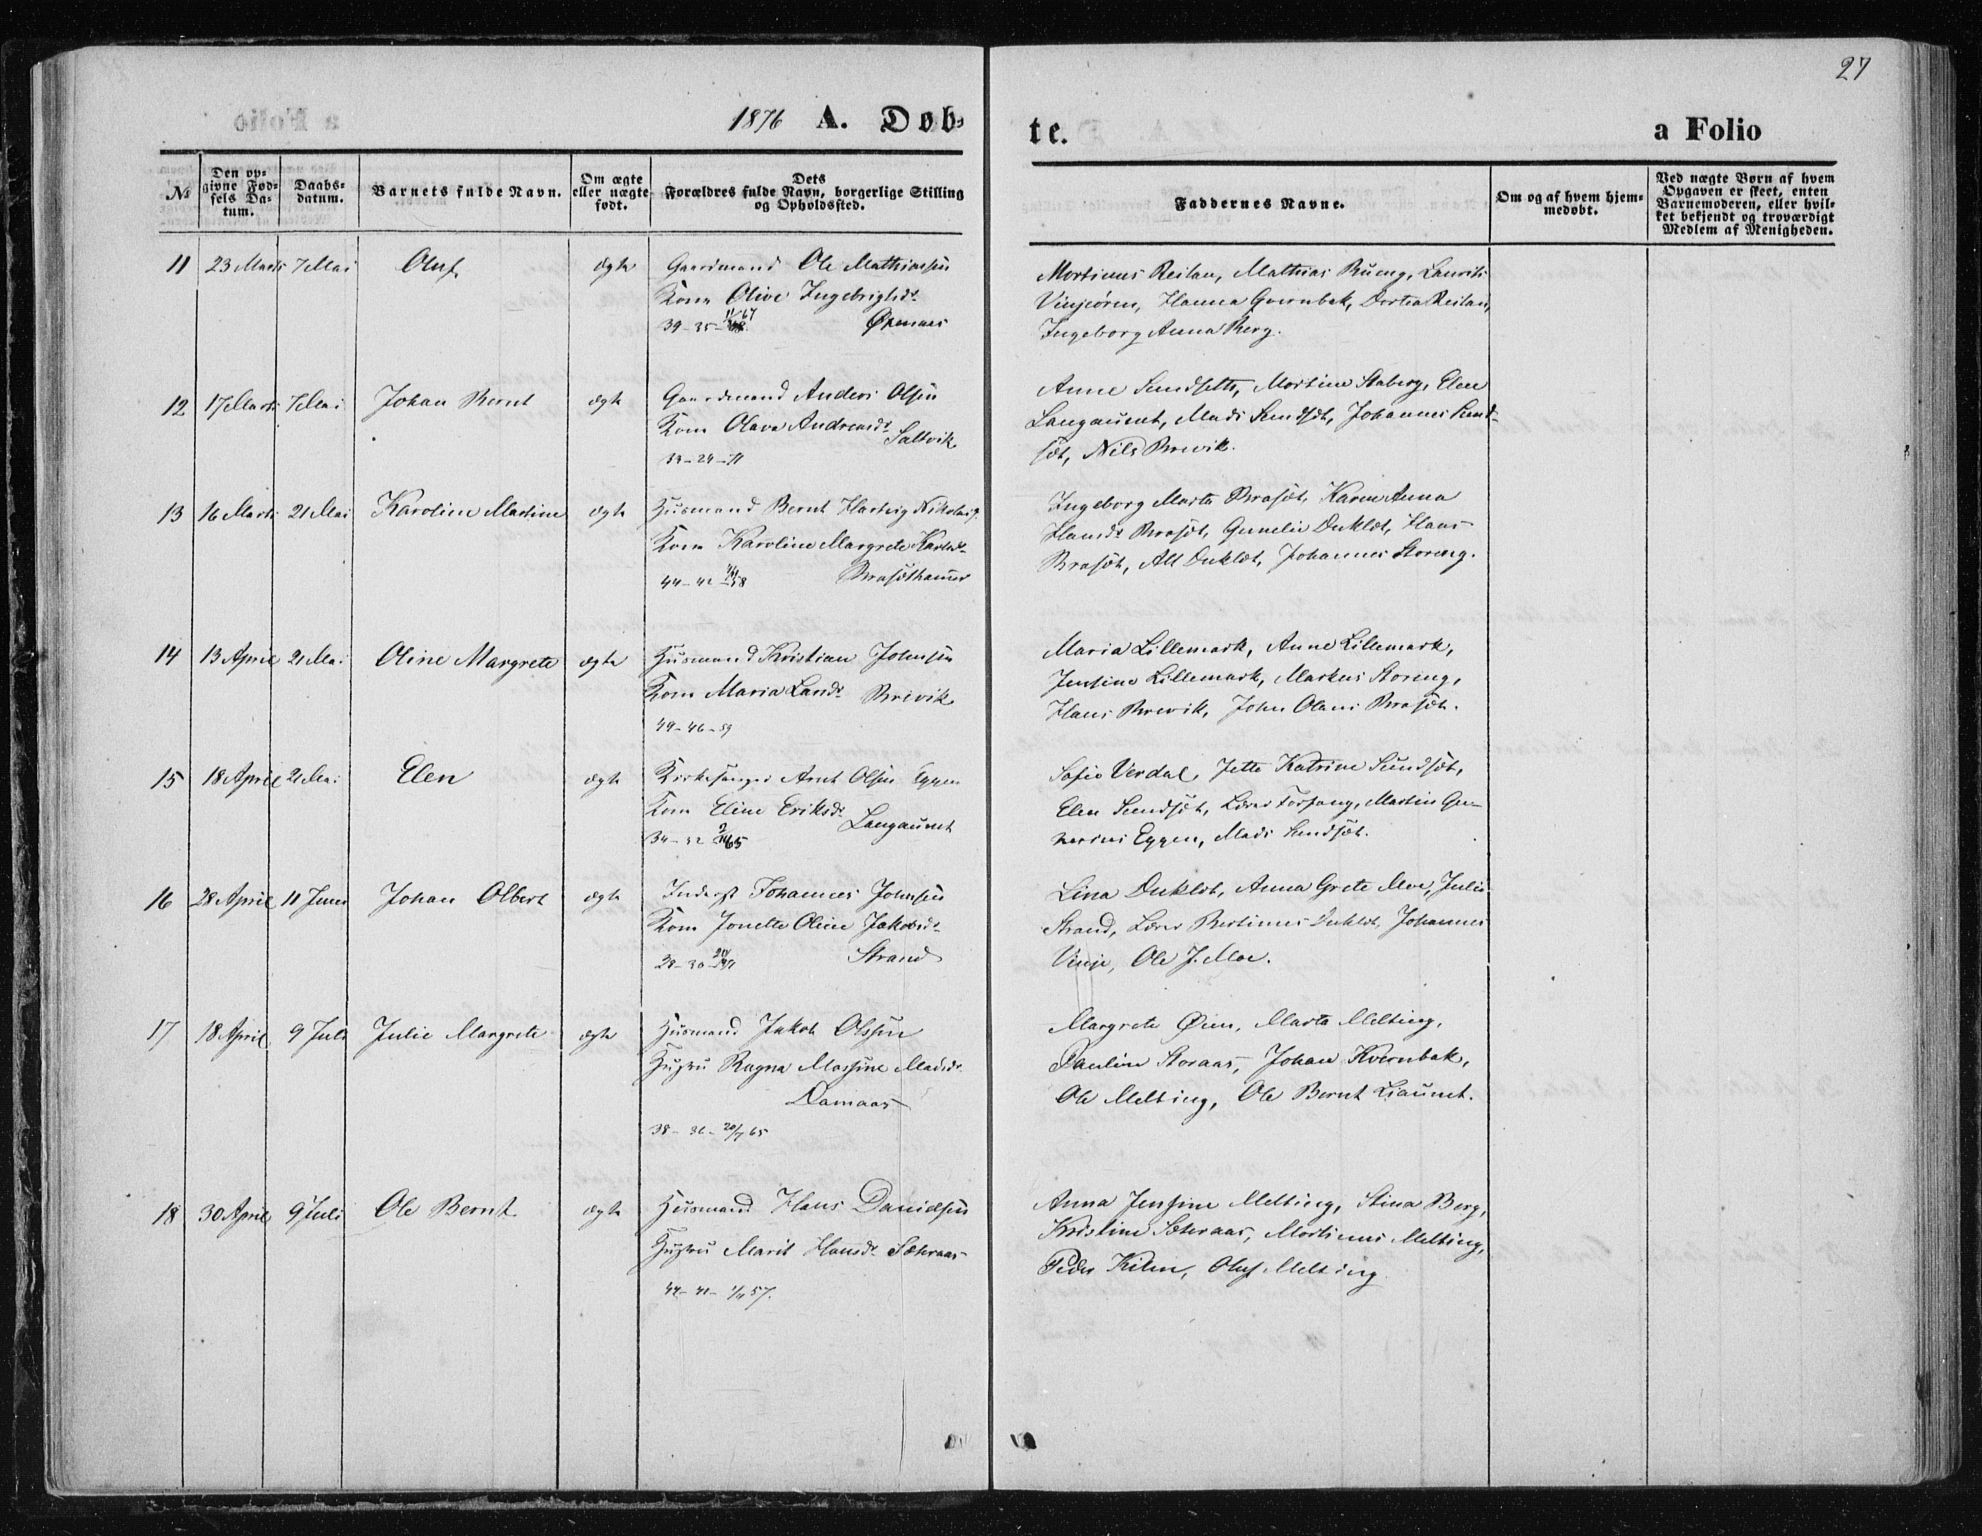 27
1876 A. Døb-
te.
a Folio
№
Den op-
givne Fød-
sels Da-
tum.
Daabs-
datum.
Barnets fulde Navn.
Om ægte
eller uægte
født.
Dets
Forældres fulde Navn, borgerlige Stilling
og Opholdssted.
Faddernes Navne.
Om og af hvem hjem-
medøbt.
Ved uægte Børn af hvem
Opgaven er skeet, enten
Barnemoderen, eller hvil-
ket bekjendt og troværdigt
Medlem af Menigheden.
11 23 Marts 7 Mai Oluf ægte Gaardmand Ole Mathiassen
Kone Olive Ingebrigtsdr
39-35- Øxnnes
Mortinus Reitan, Mathias Rueng, Laurits
Vinjeøren, Hanna Qvernbak, Dortea Reitan,
Ingeborg Anna Berg.
12 17 Marts 7 Mai Johan Bernt ægte Gaardmand Anders Olsen
Kone Olava Andreasdr Saltvik
33-24-71
Anne Sundsett, Mortine Staberg, Elen
Langaunet, Mads Sundset, Johannes Sund-
set, Nils Brevik.
13 16 Marts 21 Mai Karoline Martine ægte Husmand Bernt Hartvig Nikolais.
Kone Karoline Margrete Karlsdr
44-42 Brasethaug
Ingeborg Marta Braset, Karen Anna
Hansdr Braset, Gunelie Duklet, Hans
Braset, Alt Duklet, Johannes Storeng.
14 13 April 21 Mai Oline Margrete ægte Husmand Kristian Johnsen
Kone Maria Larsdr Brevik
49-46-59
Maria Lillemark, Anne Lillemark,
Jensine Lillemark, Markus Storeng,
Hans Brevik, John Olaus Braset.
15 18 April 21 Mai Elen ægte Kirkesanger Arnt Olsen Eggen
Kone Eline Eriksdr Langaunet
34-32 65
Sofie Verdal, Jette Katrine Sundset,
Elen Sundset, Lærer Forfang, Martin Gu-
nerius Eggen, Mads Sundset.
16 28 April 11 Juni Johan Olbert ægte Inderst Johannes Johnsen
Kone Jonette Oline Jakobsdr
28-30 Strand
Lina Duklet, Anna Grete Moe, Julie
Strand, Lærer Bertinus Duklet, Johannes
Vinje, Ole J. Moe.
17 18 April 9 Juli Julie Margrete ægte Husmand Jakob Olssen
Hustru Ragna Massine Madsdr
Damaas
38-36-20/7 65
Margrete Øien, Marta Melting,
Pauline Storaas, Johan Kvernbak,
Ole Melting, Ole Bernt Liaunet.
18 30 April 9 Juli Ole Bernt ægte Husmand Hans Danielsen
Hustru Marit Hansdr Sæteraas
44-41- 57.
Anna Jensine Melting, Stina Berg,
Kristine Sæteraas, Mortinus Melting,
Peder Kilen, Oluf Melting